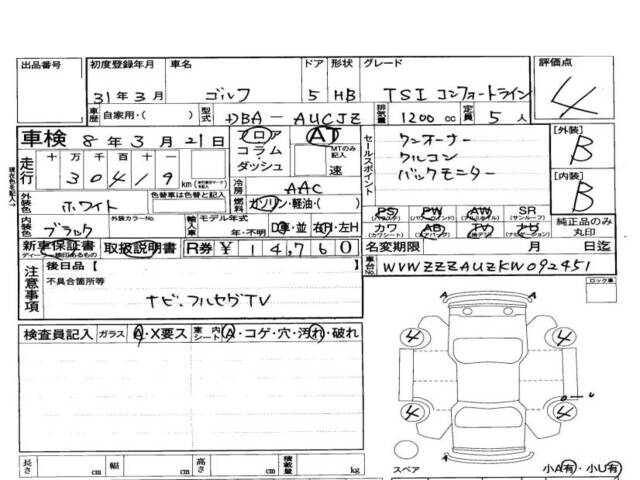 出品番号 初度登録年月 車名 ドア 形状 グレード 評価点
31年3月 ゴルフ 5 HB TSI コンフォートライン 4
車歴 自家用・( ) 型式 DBA-AUCJZ 排気量 1200cc 定員 5人
車検 8年3月21日 フロア コラム・ダッシュ AT MTのみ記入 速
セールスポイント ワンオーナー
クルコン
バックモニター
[外装] B
[内装] B
走行 十万千百十 30419km
冷房 AAC
外装色 ホワイト 色替車は色替と記入 燃料 ガソリン・軽油・( )
内装色 ブラック 外装カラーNo. 輸入車 モデル年式 年・不明 D車・並 右H・左H
PS PW AW SR 純正品のみ丸印
(パワステ) (パワーウインド) (サンルーフ)
カワ AB TV ナビ
(カワシート) (エアバック) (ナビゲーション)
新車保証書 取扱説明書 R券 ¥14,760
ディーラー検印あるもの
名変期限 月 日迄
車台No. WVWZZZAUZKW092451
注意事項 後日品[ ]
不具合箇所等
ナビ、フルセグTV
ロック車
検査員記入 ガラス A・X要ス 車内シート A・コゲ・穴・汚れ・破れ
4 4
4 4
長さ cm 幅 cm 高さ cm 積載量 kg
スペア 小A有・小U有